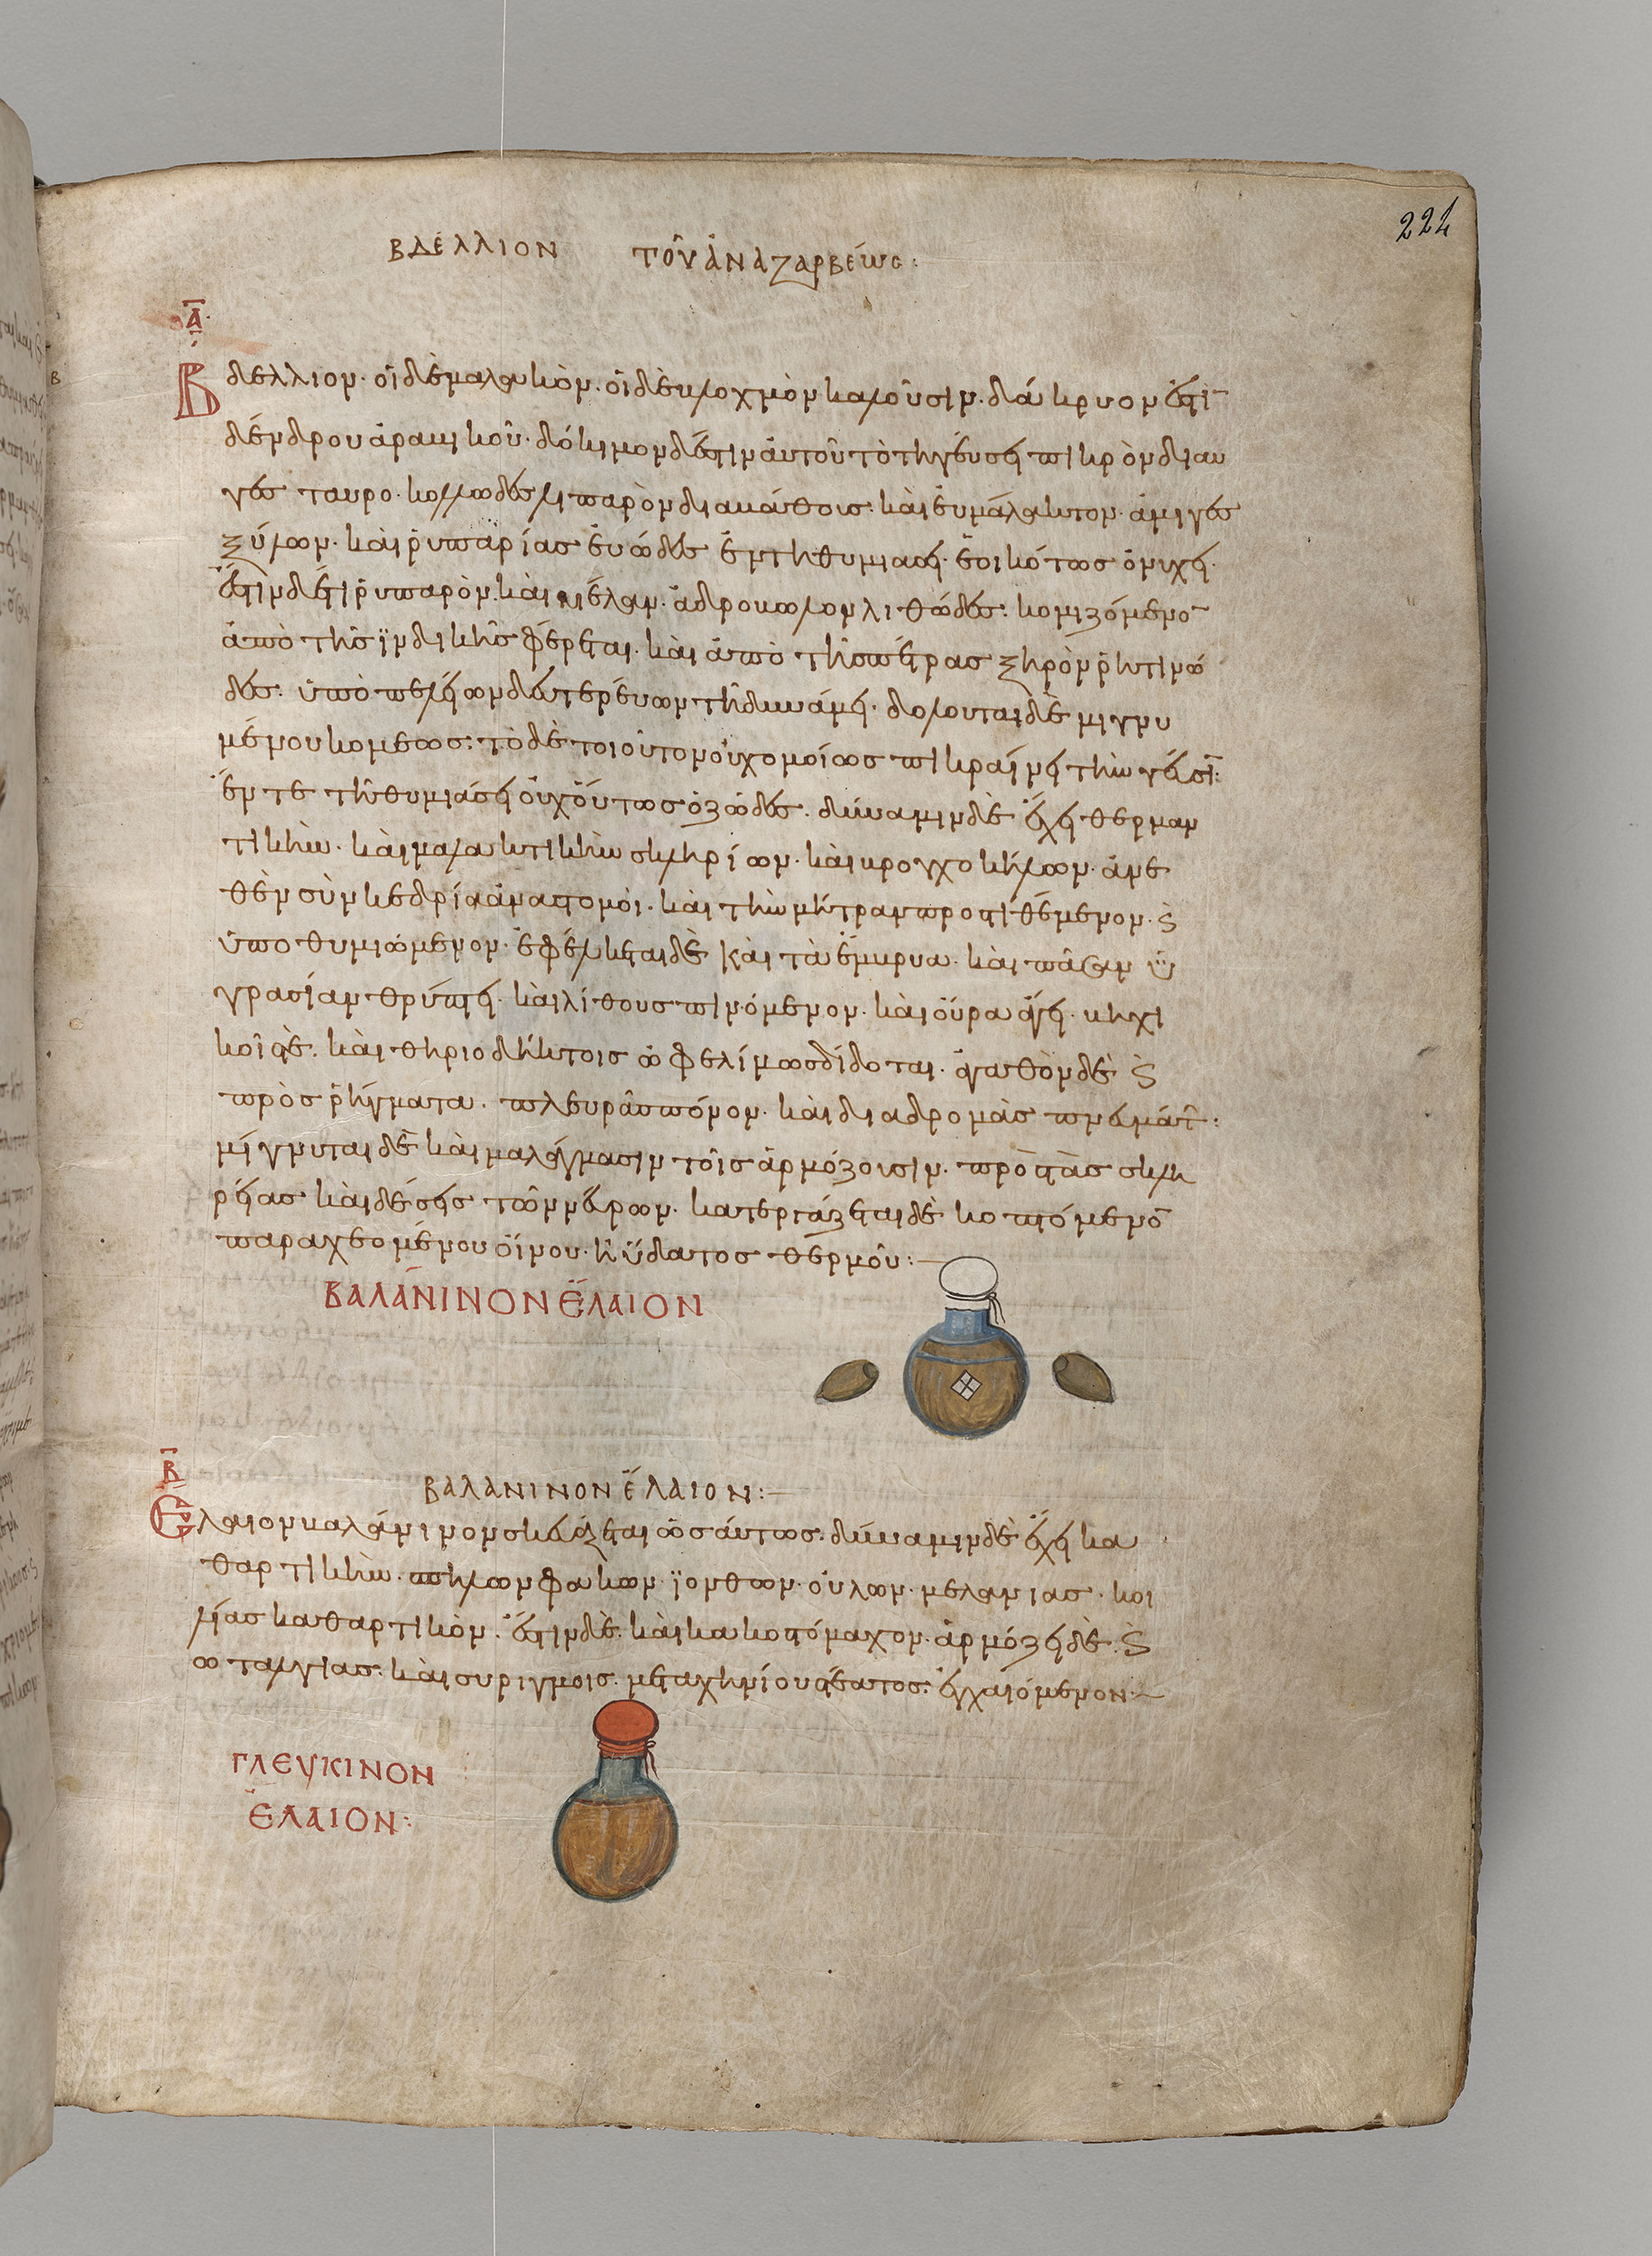 224
ΒΔΕΛΛΙΟΝ ΤΟῦ ἀΝΑΖΑΡΒΕΩC:
Α
Βδελλιον· οἱ δὲ μαλακὸν· οἱ δὲ βλοχμὸν καλοῦσιν· δάκρυον ἐστὶ
δένδρου ἀραβικοῦ· δόκιμον δέστιν αὐτοῦ τὸ τῆ γεύσει πικρὸν διαυ
γὲς ταυρο· κολλωδες λιπαρὸν διαβάθοις· καὶ εὐμάλακτον· ἀμιγὲς
ξύλων· καὶ ῥυπαρίας εὐῶδες ἐν τῆ θυμιάσει· ἐοικότως ὄνυχι·
ἔστιν δέ τι ῥυπαρὸν· καὶ μέλαν· ἁδροβωλον λιθῶδες· κομιζόμενο
ἀπὸ τῆς ϊνδικῆς φέρεται· καὶ ἀπὸ τῆς πέτρας ξηρὸν ῥητινῶ
δες· ὑπὸ πελιων δευτερεύων τῆ δυνάμει· δολουται δὲ μιγνυ
μένου κομεως· τὸ δὲ τοιοῦτον οὐχ ομοίως πικραίνει τὴν γεῦσι:
ἐν τε τῆ θυμιάσει οὐχ οὕτως ὀζῶδες· δύναμιν δὲ ἔχει θερμαν
τικὴν· καὶ μαλακτικὴν σκληρίων· καὶ βρογχοκήλων· ἀνε
θὲν σὺν κεδρία ἀναστομοῖ· καὶ τὴν μήτραν προστιθέμενον· ϛ
ὑποθυμιώμενον· ἐφέλκεται δὲ καὶ τὰ ἔμβρυα· καὶ πᾶσαν ὑ
γρασίαν θρύπτει· καὶ λίθους πινόμενον· καὶ οὖρα ἄγει· βηχι
κοῖς τε· καὶ θηριοδήκτοις ὠφελίμως δίδοται· ἀγαθὸν δὲ ϛ
πρὸς ῥήγματα· πλευρᾶς πόνον· καὶ διαδρομὰς πνευμάτ:
μίγνυται δὲ καὶ μαλάγμασιν τοῖς ἁρμόζουσιν· πρὸς τὰς σκλη
ρίας καὶ δέσεις τῶν νεύρων· κατεργάζεται δὲ κοπτόμενο
παραχεομένου οἴνου· ἢ ὕδατος θερμοῦ:
ΒΑΛΑΝΙΝΟΝ ΕΛΑΙΟΝ
Β
ΒΑΛΑΝΙΝΟΝ ΕΛΑΙΟΝ:
Ελαιον βαλάνινον σκευάζεται ὡσάυτως· δύναμιν δὲ ἔχει κα
θαρτικὴν· σπήλων φακων· ϊονθων· οὐλων· μελανιας· κοι
λίας καθαρτικὸν· ἔστιν δὲ· καὶ κακοστόμαχον· ἁρμόζει δὲ· ϛ
ωταλγίας· καὶ συριγμοις· μετα χηνίου στέατος· ἐγχεόμενον:
ΓΛΕΥΚΙΝΟΝ
ΕΛΑΙΟΝ: